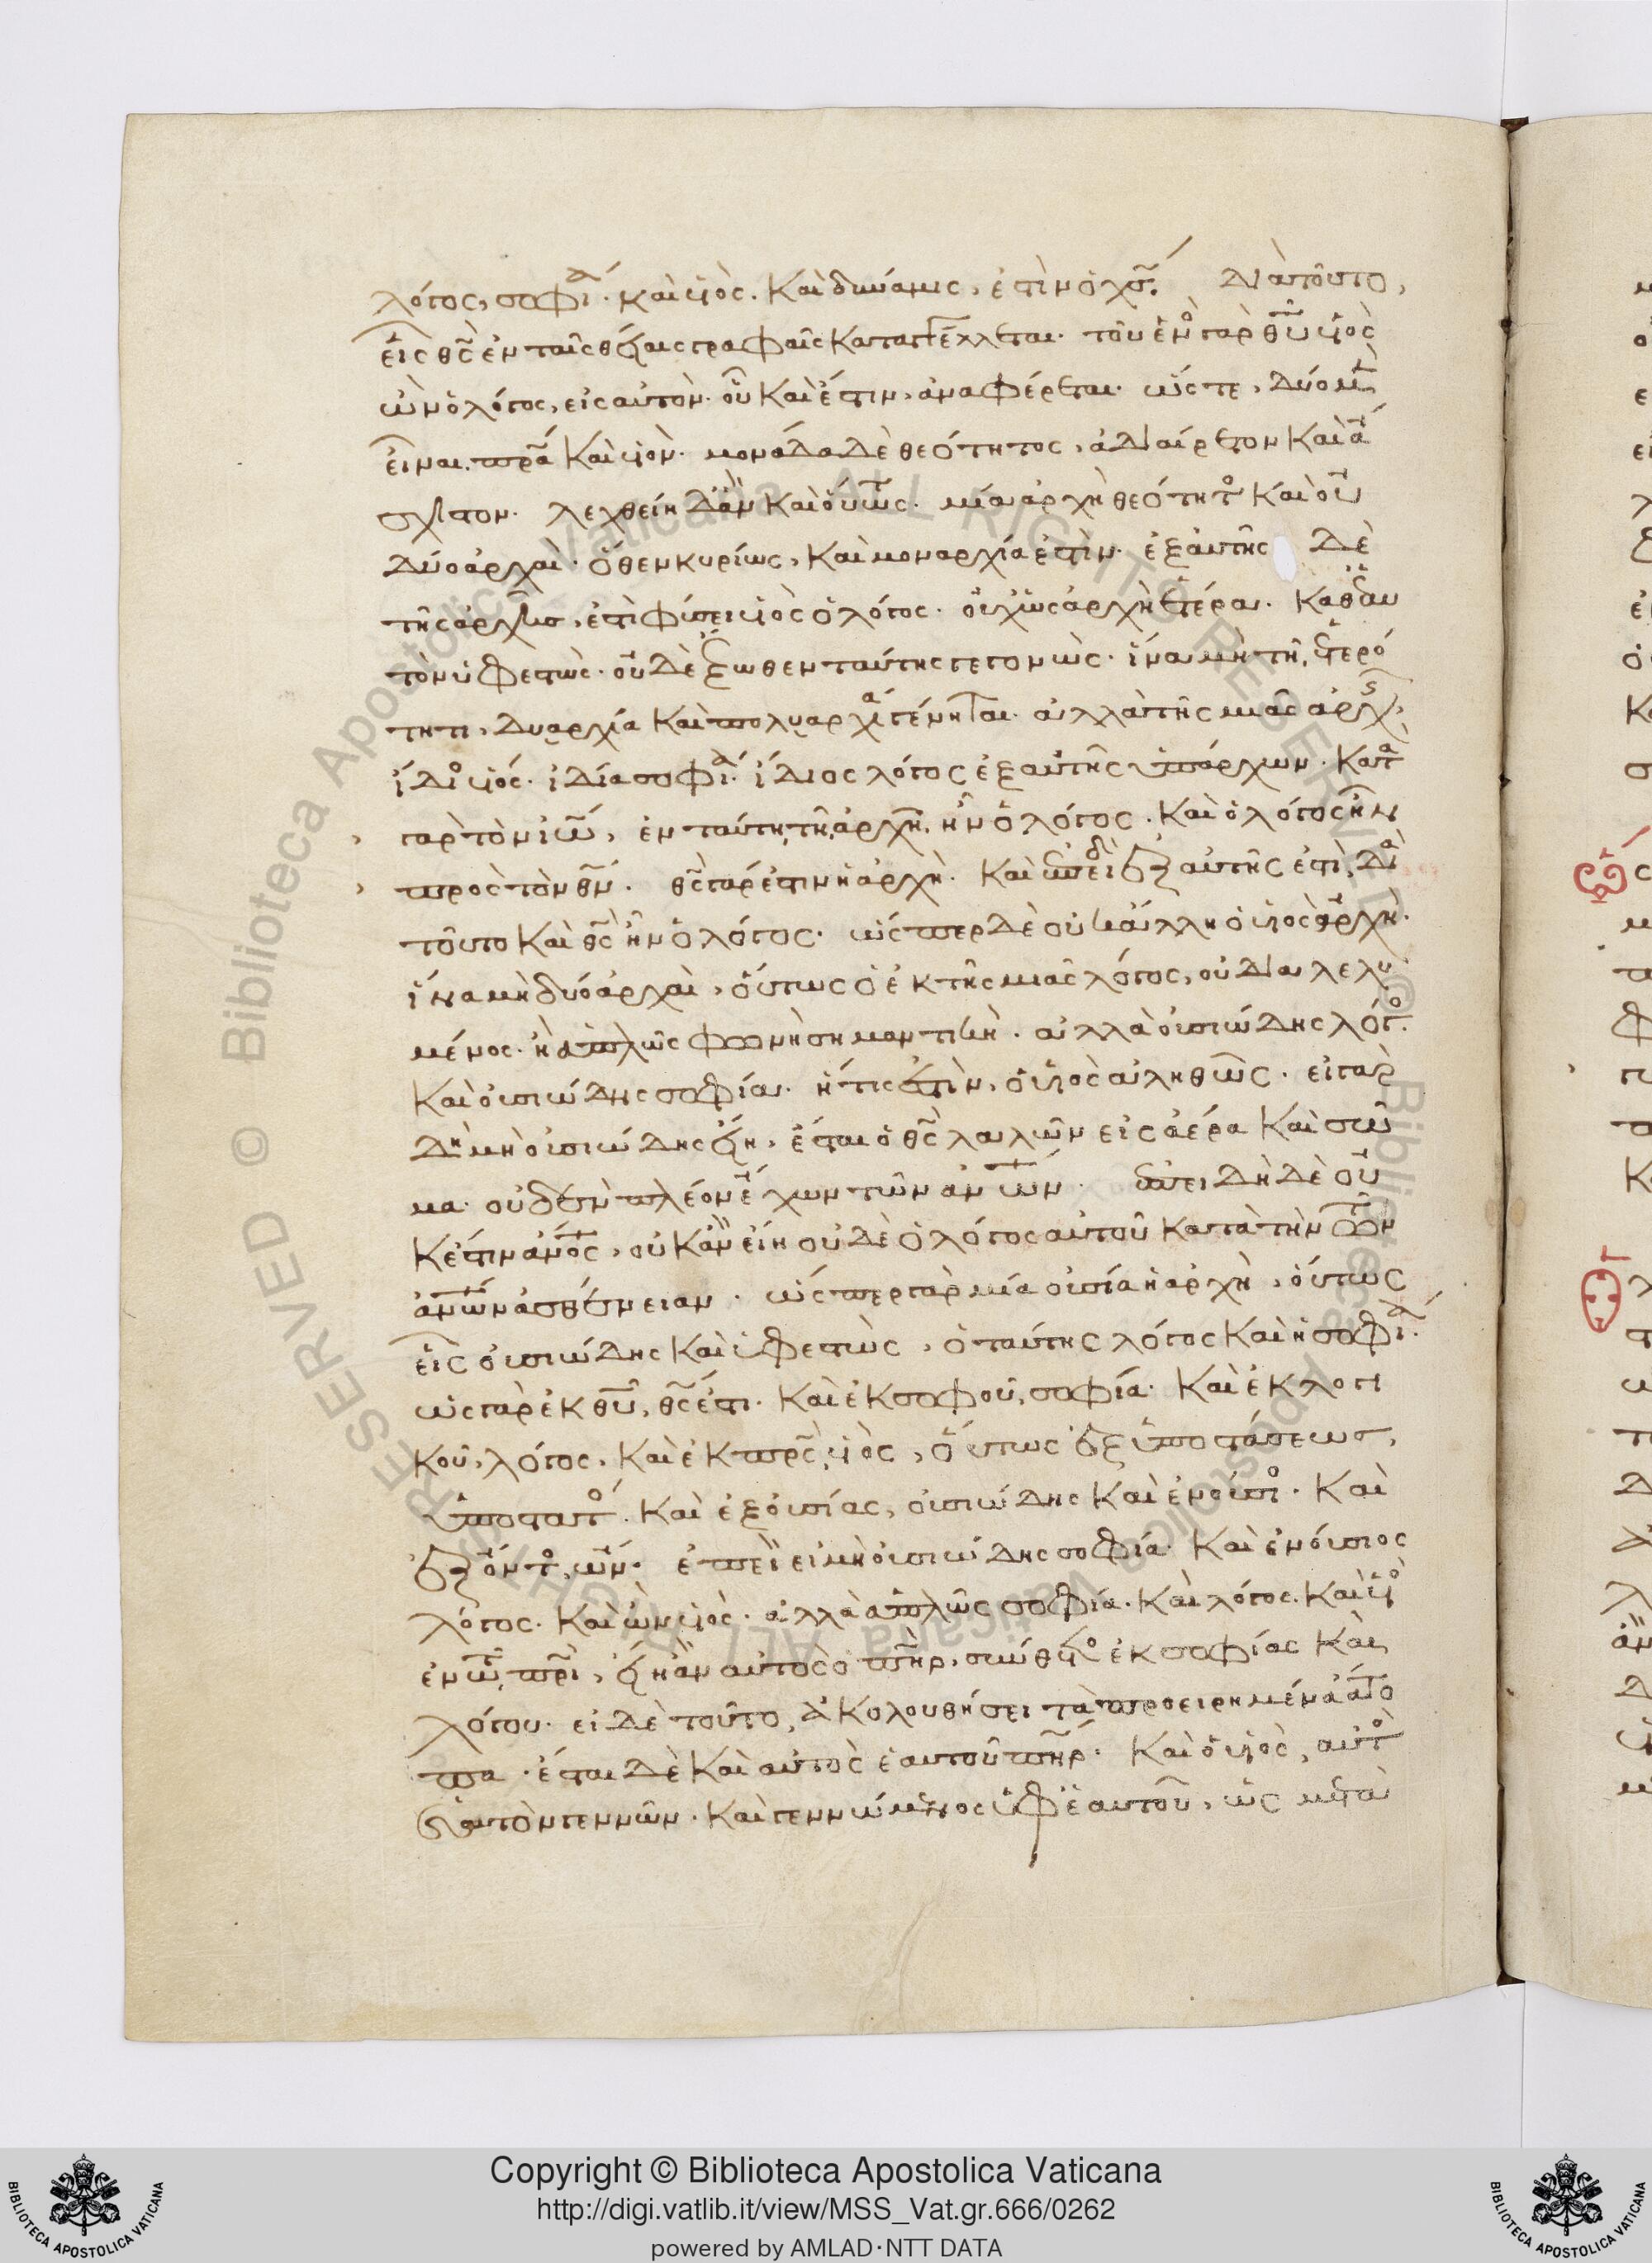 λόγος, σοφία. καὶ υἱὸς. καὶ δύναμις, ἐστὶν ὁ χς. Διατοῦτο,
εἷς θς ἐν ταῖς θείαις γραφαῖς καταγγέλλεται. τοῦ ἑνὸς γὰρ θυ υἱὸς
ὢν ὁ λόγος, εἰς αὐτὸν. οὗ καὶ ἔστιν, ἀναφέρεται. ὥστε, δύο μὲν
εἶναι, πρα καὶ υἱὸν. μονάδα δὲ θεότητος, ἀδιαίρετον καὶ ἄ
σχιστον. λεχθείη δ' ἂν καὶ οὕτως. μία ἀρχὴ θεότητος καὶ οὐ
δύο ἀρχαὶ. ὅθεν κυρίως, καὶ μοναρχία ἐστὶν. ἐξ αὐτῆς δὲ
τῆς ἀρχῆς, ἐστὶ φύσει υἱὸς ὁ λόγος. οὐχ ὡς ἀρχὴ ἑτέρα. καθ' ἑαυ
τὸν ὑφεστὼς. οὐδὲ ἔξωθεν ταύτης γεγονὼς. ἵνα μὴ τῇ ἑτερό
τητι, δυαρχία καὶ πολυαρχία γένηται. ἀλλὰ τῆς μιᾶς ἀρχῆς,
ἴδιος υἱός. ἰδία σοφία. ἴδιος λόγος ἐξ αὐτῆς ὑπάρχων. κατὰ
γὰρ τὸν ἰω, ἐν ταύτῃ τῇ ἀρχῇ, ἦν ὁ λόγος. καὶ ὁ λόγος ἦν
πρὸς τὸν θν. θς γάρ ἐστιν ἡ ἀρχὴ. καὶ ἐπειδὴ ἐξ αὐτῆς ἐστὶ, διὰ
τοῦτο καὶ θς ἦν ὁ λόγος. ὥσπερ δὲ οὐκ ἄλλη ὁ υἱὸς ἀρχὴ.
ἵνα μὴ δύο ἀρχαὶ, οὕτως ὁ ἐκ τῆς μιᾶς λόγος, οὐ διαλελυ
μένος. ἢ ἁπλῶς φωνὴ σημαντικὴ. ἀλλὰ οὐσιώδης λόγος.
καὶ οὐσιώδης σοφία. ἥτις ἐστὶν, ὁ υἱὸς ἀληθῶς. εἰ γὰρ
δὴ μὴ οὐσιώδης εἴη, ἔσται ὁ θς λαλῶν εἰς ἀέρα καὶ σῶ
μα. οὐδὲν πλέον ἔχων τῶν ἀνων. ἐπειδὴ δὲ οὐ
κ ἔστιν ἄνος, οὐκ ἂν εἴη οὐδὲ ὁ λόγος αὐτοῦ κατὰ τὴν τῶν
ἀνων ἀσθένειαν. ὥσπερ γὰρ μία οὐσία ἡ ἀρχὴ, οὕτως
εἷς οὐσιώδης καὶ ὑφεστὼς, ὁ ταύτης λόγος καὶ ἡ σοφία.
ὡς γὰρ ἐκ θυ, θς ἐστι. καὶ ἐκ σοφοῦ, σοφία. καὶ ἐκ λογι
κοῦ, λόγος. καὶ ἐκ πρς, υἱὸς, οὕτως ἐξ ὑποστάσεως,
ὑπόστατος. καὶ ἐξ οὐσίας, οὐσιώδης καὶ ἐνούσιος. καὶ
ἐξ ὄντος, ὤν. ἐπεὶ εἰ μὴ οὐσιώδης σοφία. καὶ ἐνούσιος
λόγος. καὶ ὢν υἱὸς. ἀλλὰ ἁπλῶς σοφία. καὶ λόγος. καὶ υἱὸς
ἐν τῷ πρι, εἴη ἂν αὐτὸς ὁ πηρ, σύνθετος ἐκ σοφίας καὶ
λόγου. εἰ δὲ τοῦτο, ἀκολουθήσει τὰ προειρημένα ἄτο
πα. ἔσται δὲ καὶ αὐτὸς ἑαυτοῦ πηρ. καὶ ὁ υἱὸς, αὐτὸς
ἑαυτὸν γεννῶν. καὶ γεννώμενος ὑφ' ἑαυτοῦ, ὡς μετὰ
Copyright © Biblioteca Apostolica Vaticana
http://digi.vatlib.it/view/MSS_Vat.gr.666/0262
powered by AMLAD·NTT DATA